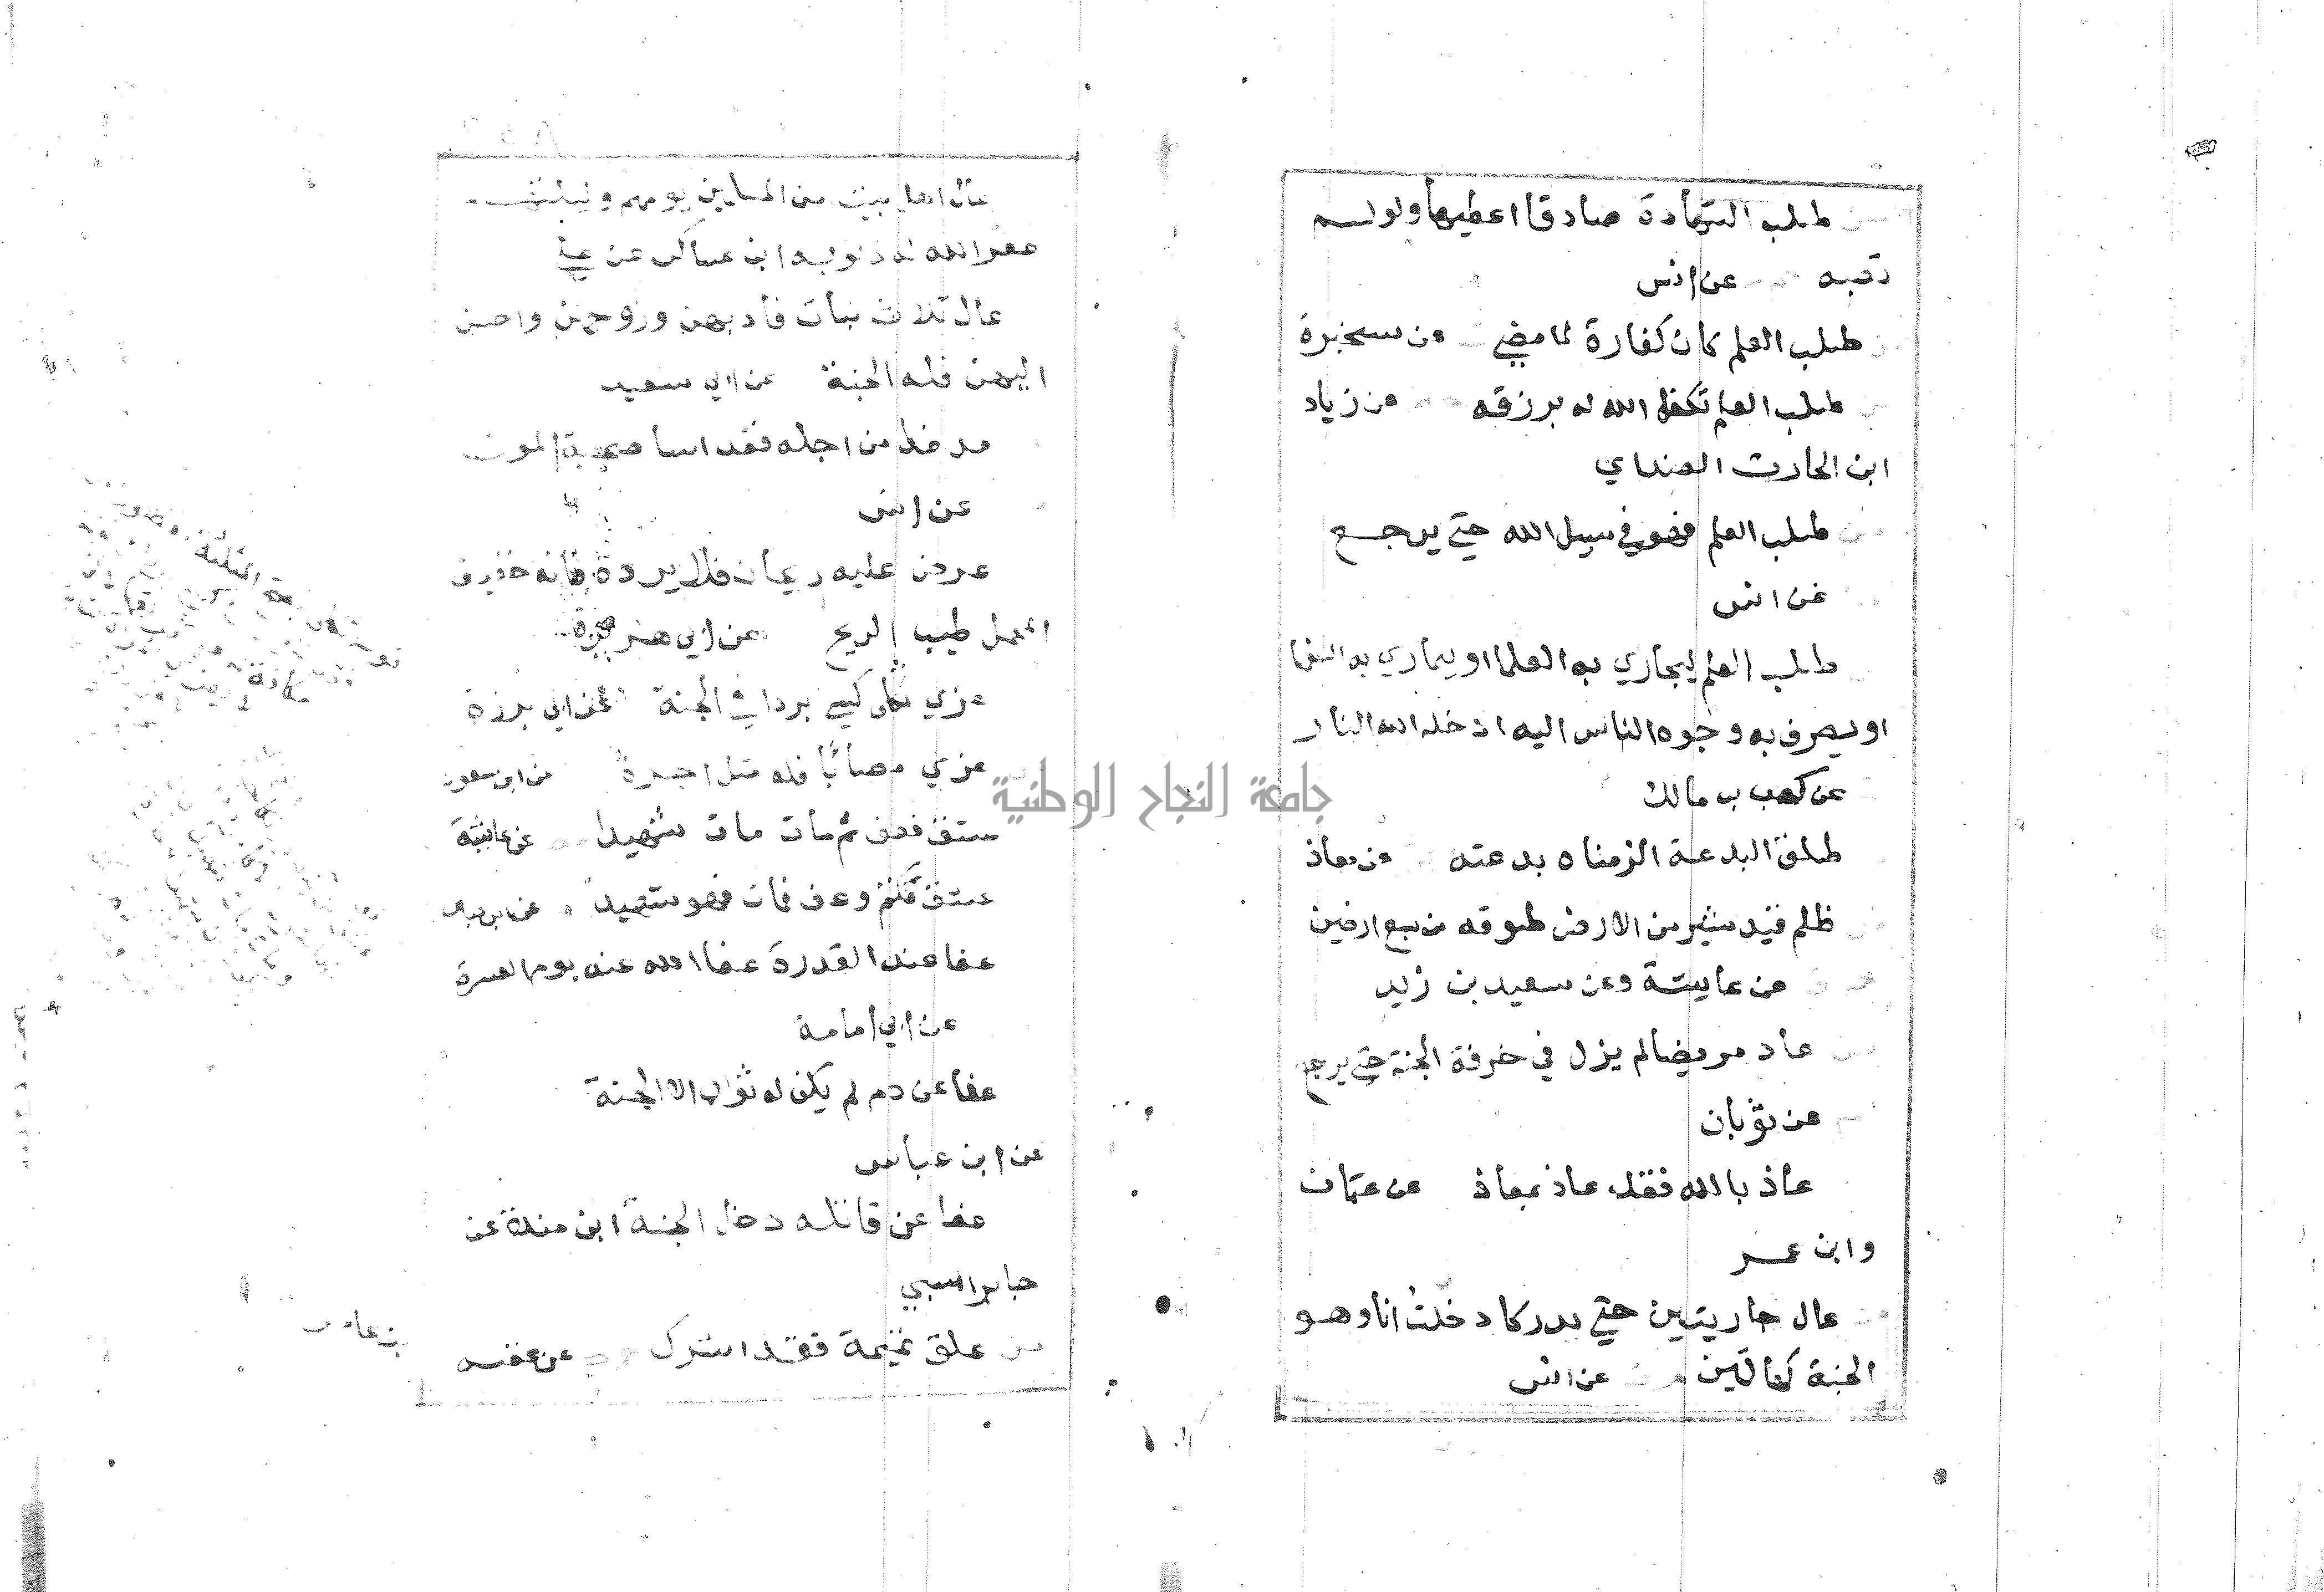 طلب الشهادة صادقا اعطيها ولو لم
تصبه عن انس
طلب العلم كان كفارة لما مضي عن سخبرة
طلب العلم تكفل الله له برزقه عن زياد
ابن الحارث الصداي
من طلب العلم فهو في سبيل الله حتي يرجع
عن انس
طلب العلم ليجاري به العلما او ليماري به السفها
او يصرف به وجوه الناس اليه ادخله الله النار
عن كعب ب مالك
طلق البدعة الزمناه بدعته عن معاذ
ظلم قيد شبر من الارض طوقه من سبع ارضين
عن عايشة وعن سعيد بن زيد
عاد مريضا لم يزل في خرفة الجنة حتي يرجع
عن ثوبان
عاذ بالله فقد عاذ بمعاذ عن عثمان
وابن عمر
عال جاريتين حتي يدركا دخلت انا وهو
الجنة كهاتين عن انس
عال اهل بيت من المسلمين يومهم وليلتهم
غفر الله له ذنوبه ابن عساكر عن علي
عال ثلاث بنات فادبهن وزوجهن واحسن
اليهن فله الجنة عن ابي سعيد
عد غدا من اجله فقد اسا صحبة الموت
عن انس
عرض عليه ريحان فلا يرده فانه خفيف
المحمل طيب الريح عن ابي هريرة
عزي ثكلي كسي بردا في الجنة عن ابي برزة
عزي مصابًا فله مثل اجره عن ابن مسعود
عشق فعف ثم مات مات شهيدا عن عائشة
عشق فكتم وعف فمات فهو شهيد عن ابن عباس
عفا عند القدرة عفا الله عنه يوم العسرة
عن ابي امامة
عفا عن دم لم يكن له ثواب الا الجنة
عن ابن عباس
عفا عن قاتله دخل الجنة ابن مندة عن
جابر الراسبي
من علق تميمة فقد اشرك عن عقبه
بن عامر
جامعة النجاح الوطنية